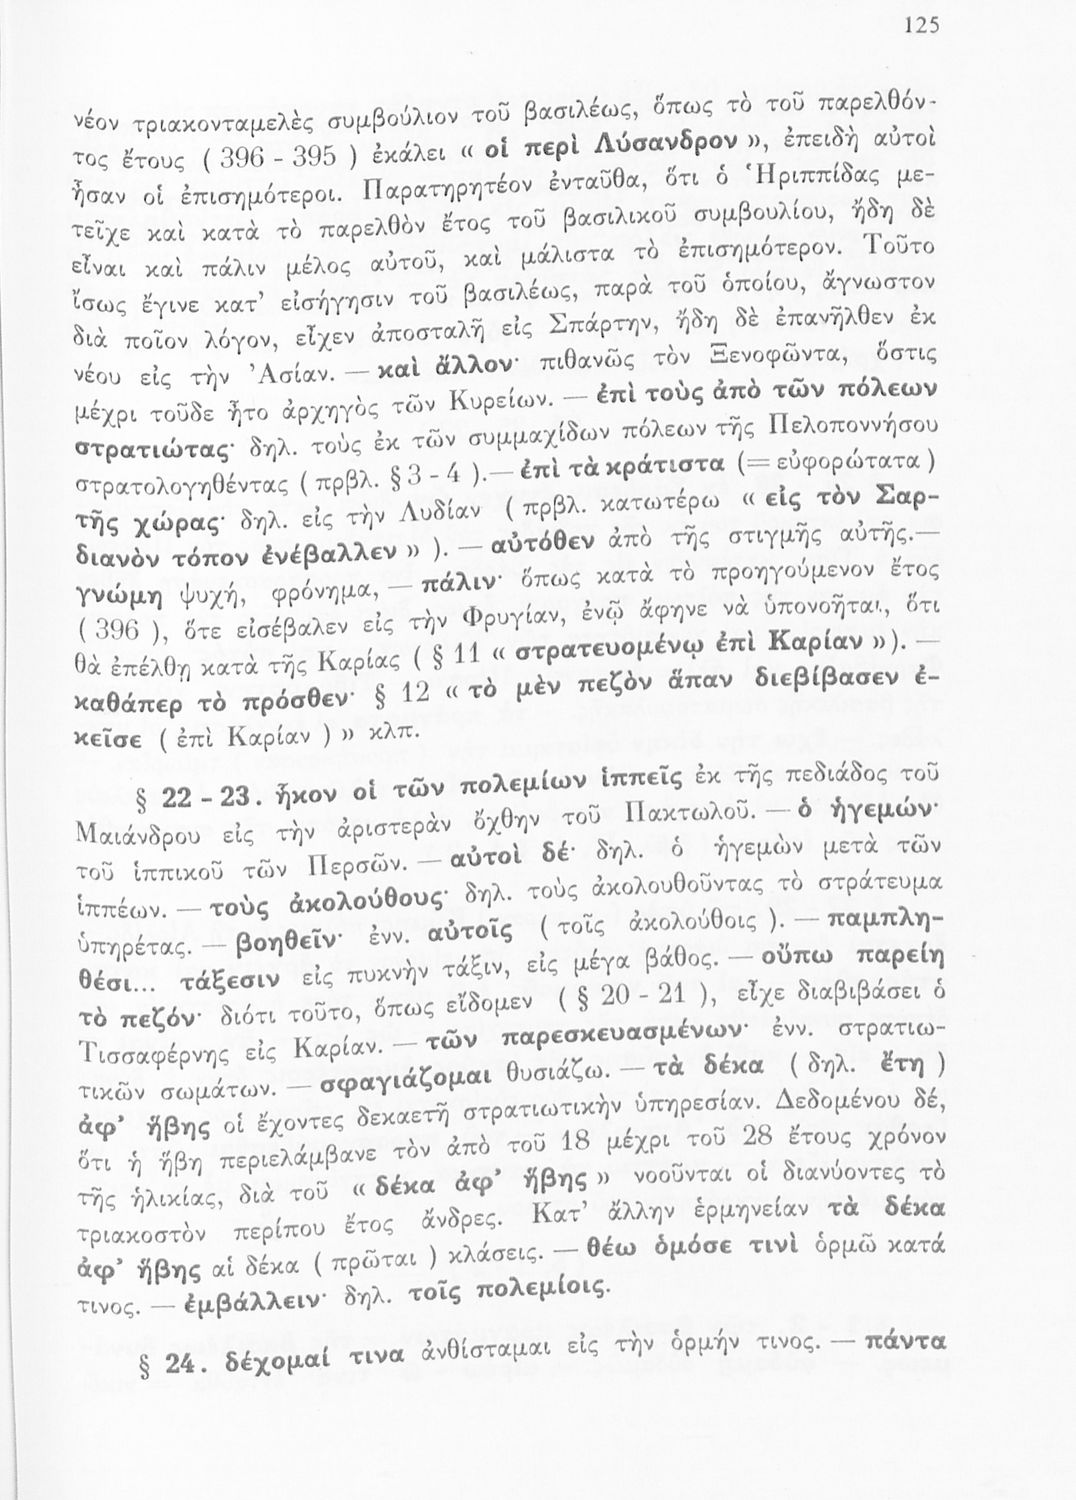 125
νέον τριακονταμελὲς συμβούλιον τοῦ βασιλέως, ὅπως τὸ τοῦ παρελθόν-
τος ἔτους ( 396 - 395 ) ἐκάλει « οἱ περὶ Λύσανδρον », ἐπειδὴ αὐτοὶ
ἦσαν οἱ ἐπισημότεροι. Παρατηρητέον ἐνταῦθα, ὅτι ὁ Ἡριππίδας με-
τεῖχε καὶ κατὰ τὸ παρελθὸν ἔτος τοῦ βασιλικοῦ συμβουλίου, ἤδη δὲ
εἶναι καὶ πάλιν μέλος αὐτοῦ, καὶ μάλιστα τὸ ἐπισημότερον. Τοῦτο
ἴσως ἔγινε κατ’ εἰσήγησιν τοῦ βασιλέως, παρὰ τοῦ ὁποίου, ἄγνωστον
διὰ ποῖον λόγον, εἶχεν ἀποσταλῆ εἰς Σπάρτην, ἤδη δὲ ἐπανῆλθεν ἐκ
νέου εἰς τὴν Ἀσίαν. — καὶ ἄλλον· πιθανῶς τὸν Ξενοφῶντα, ὅστις
μέχρι τοῦδε ἦτο ἀρχηγὸς τῶν Κυρείων. — ἐπὶ τοὺς ἀπὸ τῶν πόλεων
στρατιώτας· δηλ. τοὺς ἐκ τῶν συμμαχίδων πόλεων τῆς Πελοποννήσου
στρατολογηθέντας ( πρβλ. § 3 - 4 ).— ἐπὶ τὰ κράτιστα (= εὐφορώτατα )
τῆς χώρας· δηλ. εἰς τὴν Λυδίαν ( πρβλ. κατωτέρω « εἰς τὸν Σαρ-
διανὸν τόπον ἐνέβαλλεν » ). — αὐτόθεν ἀπὸ τῆς στιγμῆς αὐτῆς.—
γνώμη ψυχή, φρόνημα, — πάλιν· ὅπως κατὰ τὸ προηγούμενον ἔτος
( 396 ), ὅτε εἰσέβαλεν εἰς τὴν Φρυγίαν, ἐνῷ ἄφηνε νὰ ὑπονοῆται, ὅτι
θὰ ἐπέλθῃ κατὰ τῆς Καρίας ( § 11 « στρατευομένῳ ἐπὶ Καρίαν »). —
καθάπερ τὸ πρόσθεν· § 12 « τὸ μὲν πεζὸν ἅπαν διεβίβασεν ἐ-
κεῖσε ( ἐπὶ Καρίαν ) » κλπ.
§ 22 - 23. ἧκον οἱ τῶν πολεμίων ἱππεῖς ἐκ τῆς πεδιάδος τοῦ
Μαιάνδρου εἰς τὴν ἀριστερὰν ὄχθην τοῦ Πακτωλοῦ. — ὁ ἡγεμών·
τοῦ ἱππικοῦ τῶν Περσῶν. — αὐτοὶ δέ· δηλ. ὁ ἡγεμὼν μετὰ τῶν
ἱππέων. — τοὺς ἀκολούθους· δηλ. τοὺς ἀκολουθοῦντας τὸ στράτευμα
ὑπηρέτας. — βοηθεῖν· ἐνν. αὐτοῖς ( τοῖς ἀκολούθοις ). — παμπλη-
θέσι... τάξεσιν εἰς πυκνὴν τάξιν, εἰς μέγα βάθος. — οὔπω παρείη
τὸ πεζόν· διότι τοῦτο, ὅπως εἴδομεν ( § 20 - 21 ), εἶχε διαβιβάσει ὁ
Τισσαφέρνης εἰς Καρίαν. — τῶν παρεσκευασμένων· ἐνν. στρατιω-
τικῶν σωμάτων. — σφαγιάζομαι θυσιάζω. — τὰ δέκα ( δηλ. ἔτη )
ἀφ’ ἥβης οἱ ἔχοντες δεκαετῆ στρατιωτικὴν ὑπηρεσίαν. Δεδομένου δέ,
ὅτι ἡ ἥβη περιελάμβανε τὸν ἀπὸ τοῦ 18 μέχρι τοῦ 28 ἔτους χρόνον
τῆς ἡλικίας, διὰ τοῦ « δέκα ἀφ’ ἥβης » νοοῦνται οἱ διανύοντες τὸ
τριακοστὸν περίπου ἔτος ἄνδρες. Κατ’ ἄλλην ἑρμηνείαν τὰ δέκα
ἀφ’ ἥβης αἱ δέκα ( πρῶται ) κλάσεις. — θέω ὁμόσε τινὶ ὁρμῶ κατά
τινος. — ἐμβάλλειν· δηλ. τοῖς πολεμίοις.
§ 24. δέχομαί τινα ἀνθίσταμαι εἰς τὴν ὁρμήν τινος. — πάντα